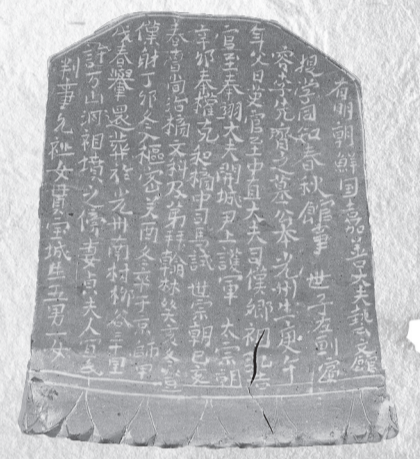 有明朝鮮国嘉善大夫藝文館
提学同知春秋館事 世子左副賓
客李先齊之墓公本光州生庚午
年父日英官至中直大夫司僕鄉祖
官至奉翊大夫開城尹上護軍 太宗朝
辛卯奉權克和榜中司馬試 世宗朝己亥
春曺尚治榜文科及第拜翰林癸亥冬登
僕射丁卯冬入樞密癸酉冬卒于京師甲
戌春轝還葬於光州南村柳谷辛里
許方山洞祖墳之傍妻貞夫人
判事允祉女貫宗城生五男一女